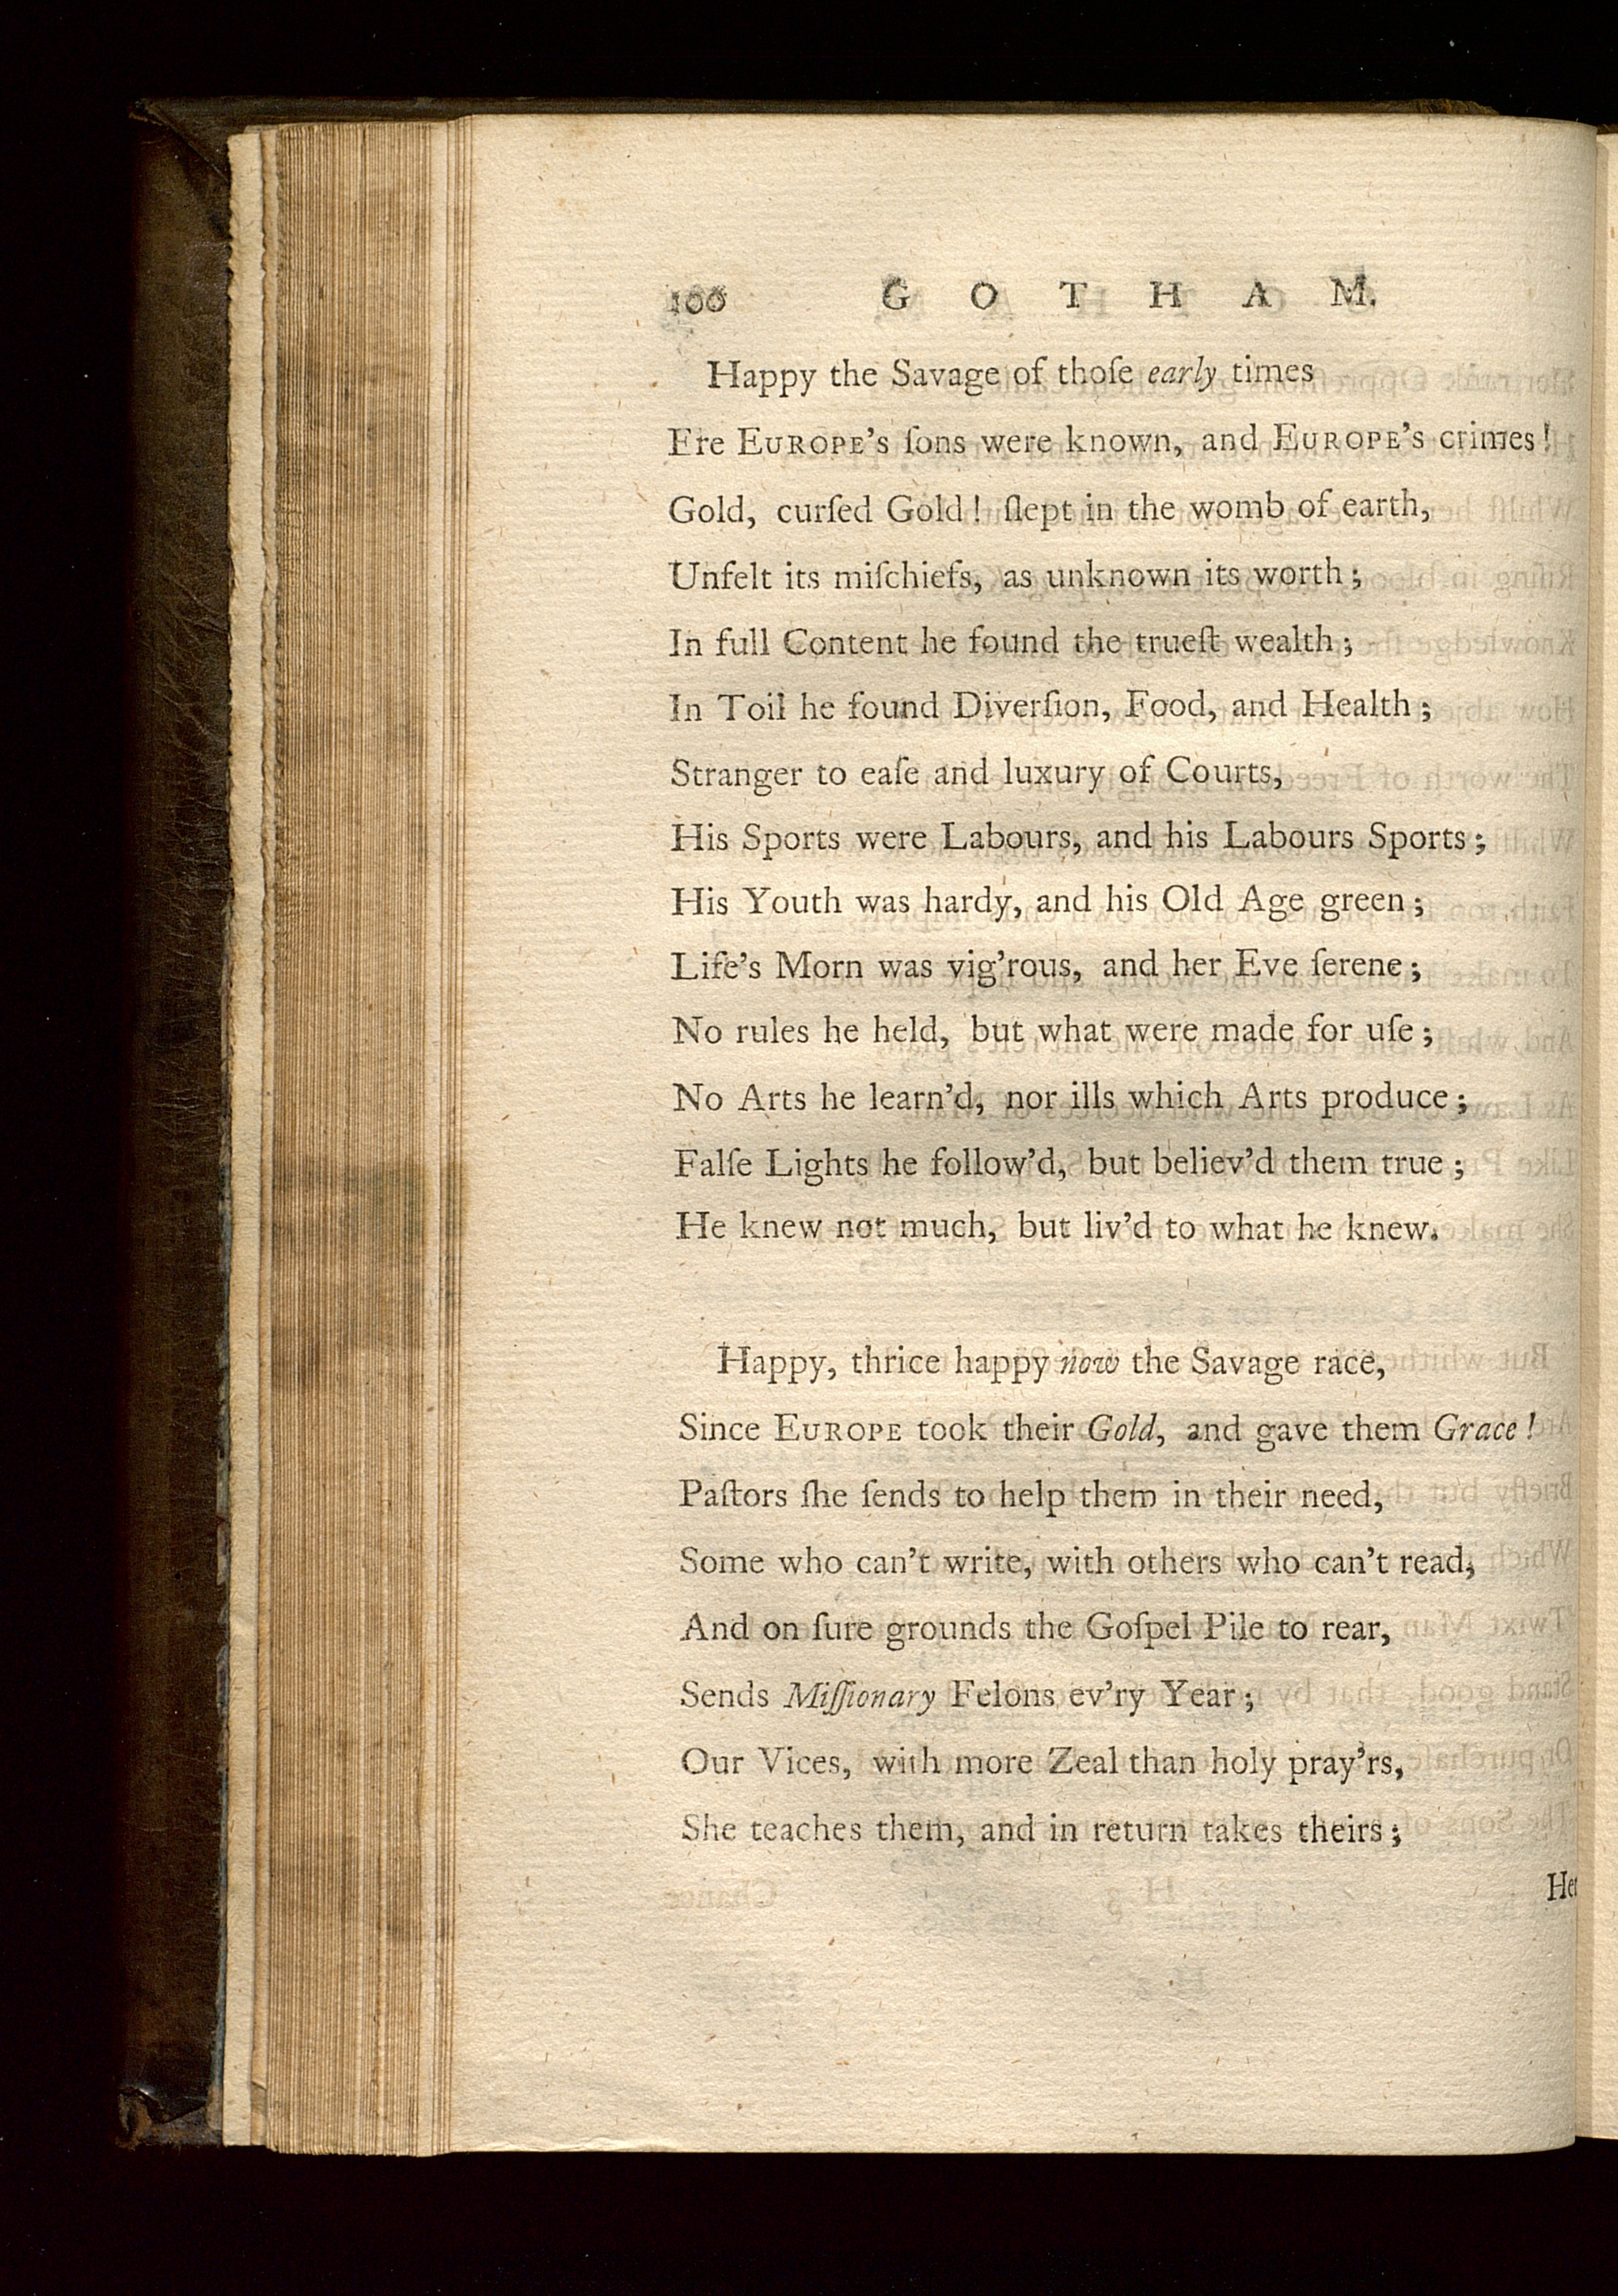 100 G O T H A M.
Happy the Savage of thoſe early times
Ere EUROPE's ſons were known, and EUROPE's crimes!
Gold, curſed Gold! ſlept in the womb of earth,
Unfelt its miſchiefs, as unknown its worth;
In full Content he found the trueſt wealth;
In Toil he found Diverſion, Food, and Health;
Stranger to eaſe and luxury of Courts,
His Sports were Labours, and his Labours Sports;
His Youth was hardy, and his Old Age green;
Life's Morn was vig'rous, and her Eve ſerene;
No rules he held, but what were made for uſe;
No Arts he learn'd, nor ills which Arts produce;
Falſe Lights he follow'd, but believ'd them true;
He knew not much, but liv'd to what he knew.
Happy, thrice happy now the Savage race,
Since EUROPE took their Gold, and gave them Grace!
Paſtors ſhe ſends to help them in their need,
Some who can't write, with others who can't read,
And on ſure grounds the Goſpel Pile to rear,
Sends Miſſionary Felons ev'ry Year;
Our Vices, with more Zeal than holy pray'rs,
She teaches them, and in return takes theirs;